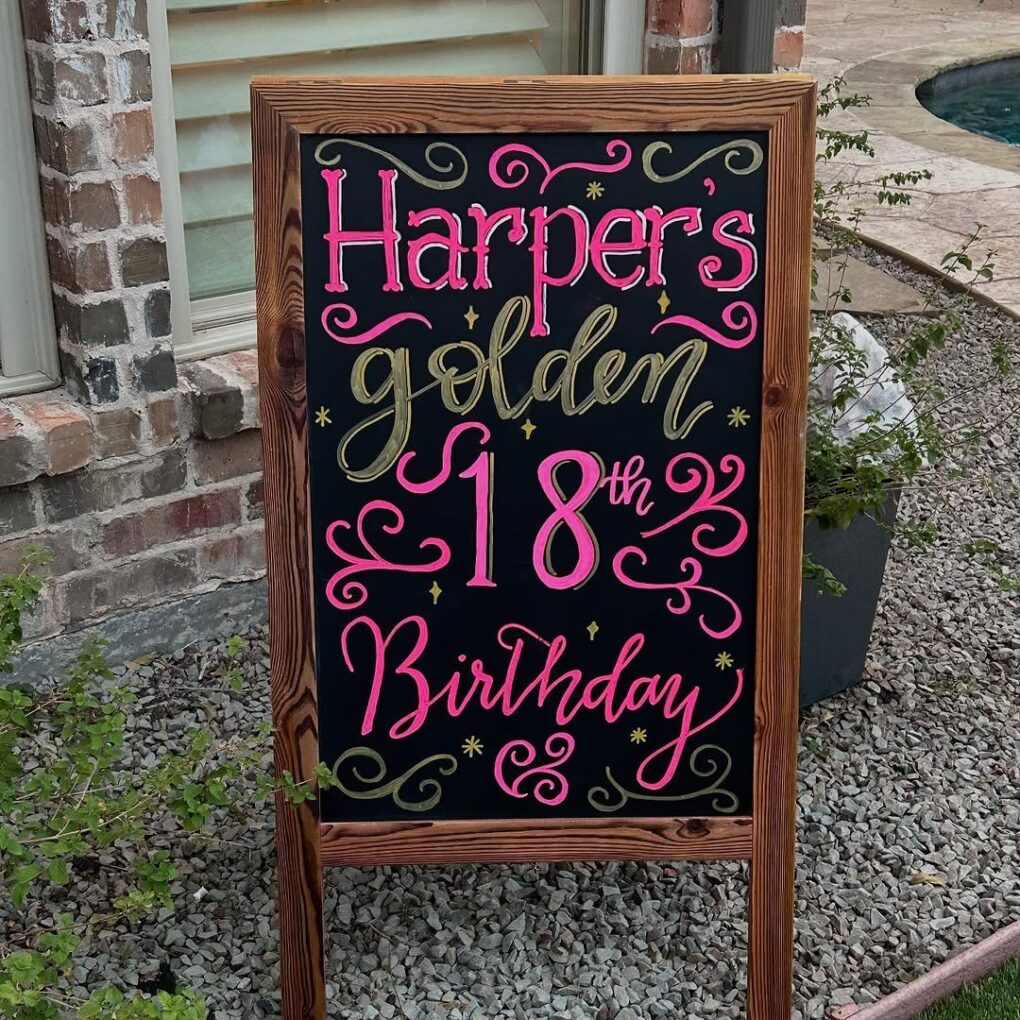 Harper's
golden
18th
Birthday